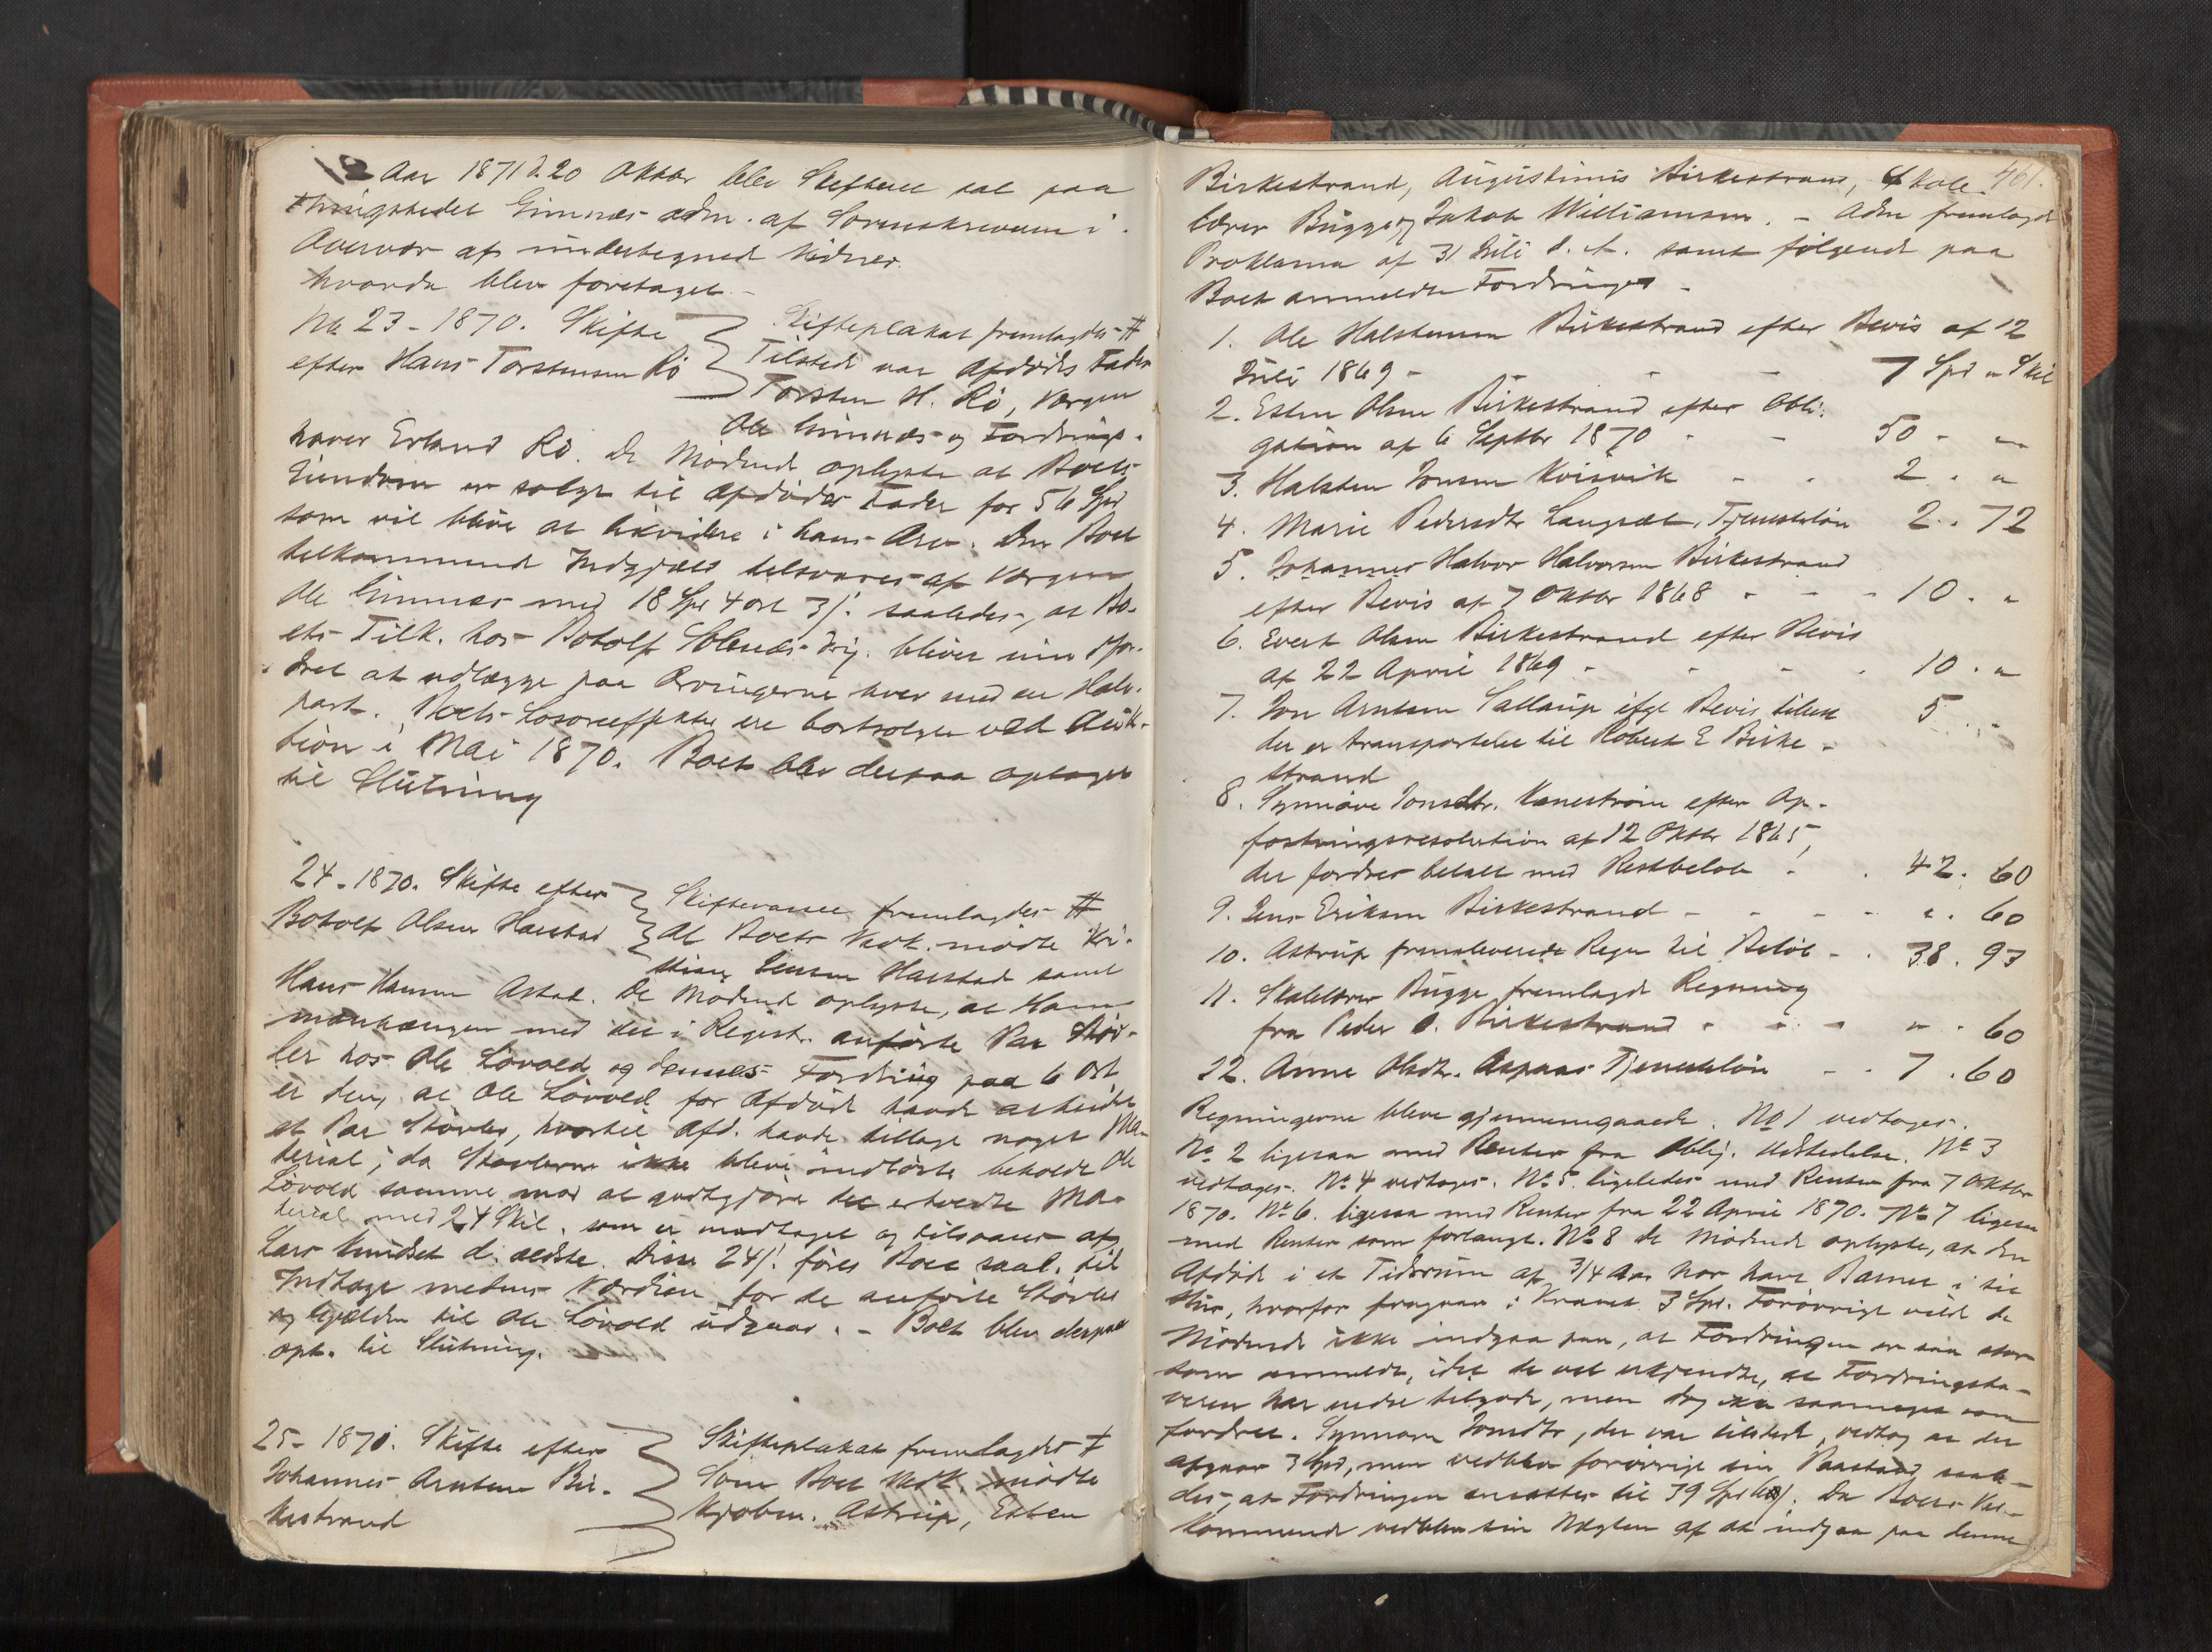 Aar 1871 d. 20 Oktbr blev Skifteret sat paa
Thingstedet Gimnæs adm. af Sorenskriveren i
Overvær af undertegnede Vidner.
hvorda blev foretaget
No 23 - 1870. Skifte
efter Hans Torstensen Rö
Skifteplakat fremlagdes #
Tilstede var Afdødes Fader
Torsten H. Rö, Værgen
Ole Gimnæs og Fordrings-
haver Erland Rö. De Mødende oplyste at Boets
Eiendom er solgt til Afdødes Fader for 56 Spd
som vil blive at likvidere i hans Arv. Den Boet
tilkommende Indgjæld tilsvares af Værgen
Ole Gimnæs med 18 Spd 4 ort 3 s. saaledes, at Bo-
ets Tilk. hos Botolf Solenæs
dret at udlægge paa Arvingerne hver med en Halv-
part. Boets Løsøreeffekter ere bortsolgte ved Auk-
tion i Mai 1870. Boet blev derpaa optaget
til Slutning
24 - 1870. Skifte efter
Botolf Olsen Harstad
Skiftevarsel fremlagdes #
Af Boets Vedk. mødte Kri-
stian Jensen Harstad samt
Hans Hansen Astad. De Mødende oplyste, at Sam-
menhængen med det i Registr. anførte Par Støv-
ler hos Ole Løvold og dennes Fordring paa 6 Ort
er den, at Ole Løvold for Afdøde havde arbeidet
et Par Støvler, hvortil Afd. havde tillagt noget Ma-
terial; da Støvlerne ikke bleve indløste beholdt Ole
Løvold samme mod at godtgjøre det erholdte Ma-
terial med 24 Skil. som er modtaget og tilsvares af
Lars Knudset d. ældste. Disse 24 s. føres Boet saal. til
Indtægt medens Værdien for de anførte Støvler
og Gjælden til Ole Løvold udgaar. - Boet blev derpaa
opt. til Slutning.
25 - 1870. Skifte efter
Johannes Arntsen Bir-
kestrand
Skifteplakat fremlagdes #
Som Boet Vedk. mødte
Kjøbm. Astrup, Esten
461.
Birkestrand, Augustinus Birkestrand, Skole-
lærer Bugge og Jakob Williamsen. - Adm fremlagde
Proklama af 31 Juli d. A. samt følgende paa
Boet anmeldte Fordringer -
1. Ole Halstensen Birkestrand efter Bevis af 12
Juli 1869 - - - - 7 Spd " Skil
2. Esten Olsen Birkestrand efter Obli-
gation af 6 Septbr 1870 - - 50 - "
3. Halsten Jonsen Kvisvik - - 2 . "
4. Marie Pedersdtr Langsæt, Tjenesteløn 2 . 72
5. Johannes Halvor Halvorsen Birkestrand
efter Bevis af 7 Oktbr 1868 - - - 10 . "
6. Evert Olsen Birkestrand efter Bevis
af 22 April 1869 - - - - 10 . "
7. Jon Arntsen Sattrup ifgl Bevis 5 . "
der er transporteret til Robert E Birke-
strand
8. Synnøve Jonsdtr. Vaneström efter Op-
fostringsresolution af 12 Oktbr 1865,
der fordres betalt med Restbeløb - . 42 . 60
9. Jens Eriksen Birkestrand - - - - " . 60
10. Astrup fremleverede Regn til Beløb - . 38 . 93
11. Skolelærer Bugge fremlagde Regning
fra Peder O. Birkestrand - - - " . 60
12. Anne Olsdtr. Aspaas Tjenesteløn - - 7 . 60
Regningerne bleve gjennemgaaede. No 1 vedtages.
No 2 ligesaa med Renter fra Oblig. Udstedelse. No 3
vedtages. No 4 vedtages. No 5 ligeledes med Renter fra 7 Oktbr
1870. No 6. ligesaa med Renter fra 22 April 1870. No 7 ligesaa
med Renter som forlangt. No 8 de Mødende oplyste, at den
Afdøde i et Tidsrum af 3/4 Aar har havt Barnet i sit
Hus, hvorfor fragaar i Kravet 3 Spd. Forøvrigt vilde de
Mødende ikke indgaa paa, at Fordringen er saa stor
som anmeldt, idet de vel erkjendte, at Fordringsha-
veren har endel tilgode, men dog ikke saameget som
fordret. Synnøve Jonsdtr, der var tilstede, vedtog at der
afgaar 3 Spd, men vedblev forøvrigt sin Paastand saale-
des, at Fordringen ansættes til 39 Spd 60 s. Da Boets Ved-
kommende vedblev sin Nægten af at indgaa paa denne